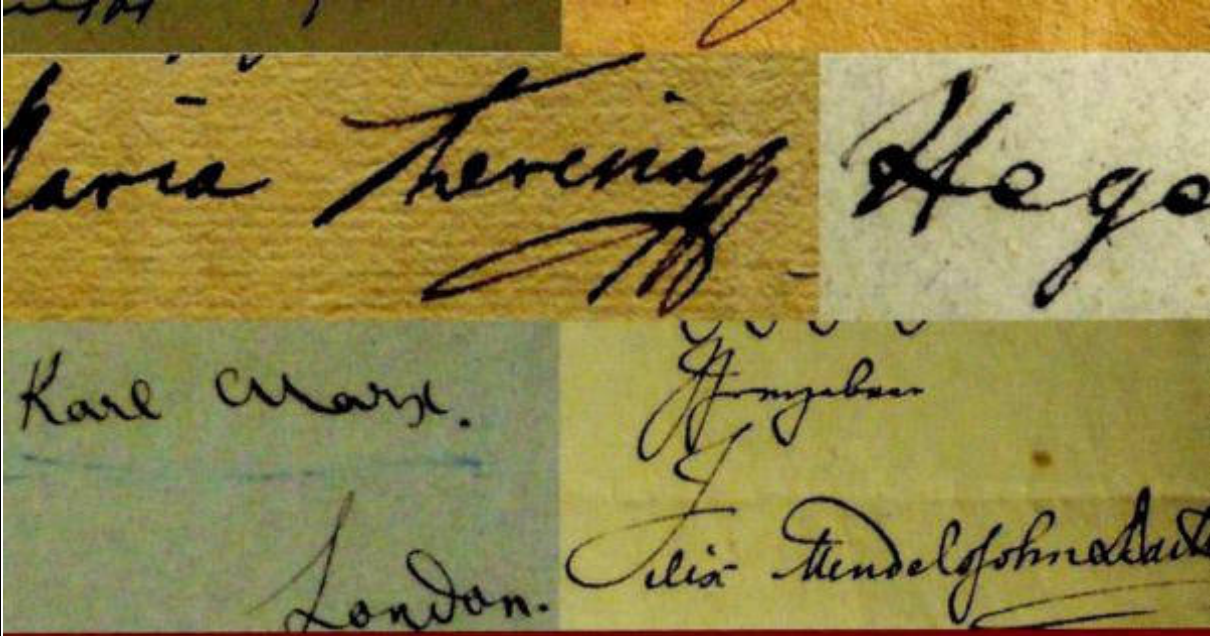 Maria Theresia
Hege
Karl Marx.
London.
Felix Mendelssohn Barth